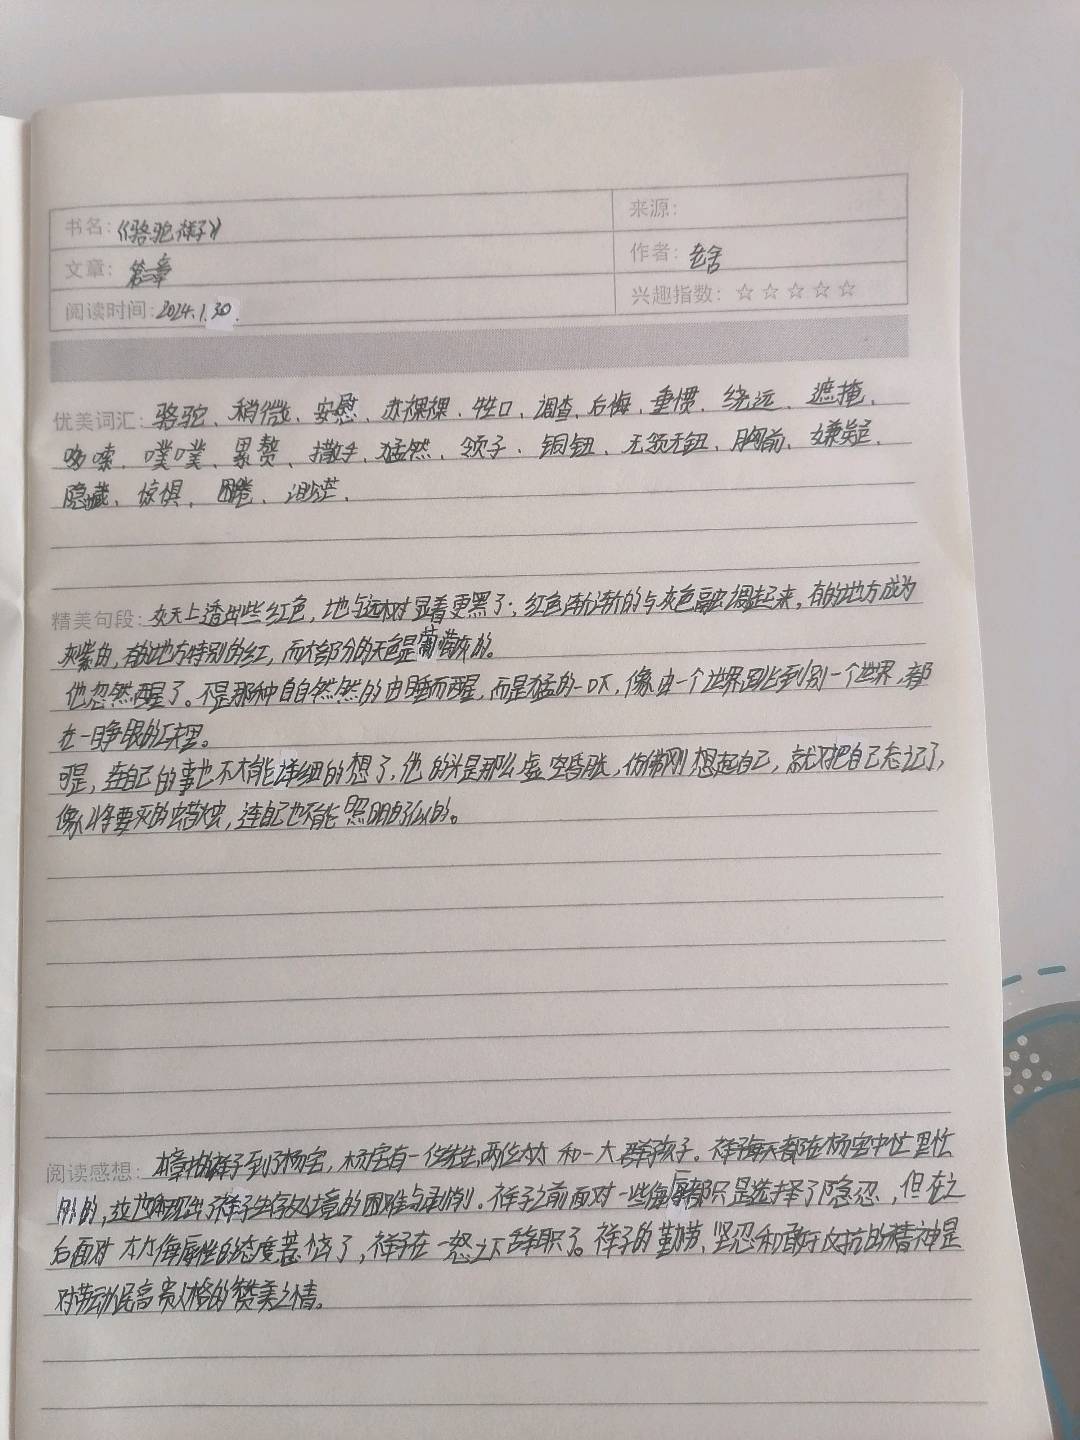 书名：《骆驼祥子》
来源：
文章：第三章
作者：老舍
阅读时间：2024.1.30.
兴趣指数：☆☆☆☆☆
优美词汇：骆驼、稍微、安慰、赤裸裸、牲口、调查、后悔、垂惯、绕远、遮掩、
哆嗦、噗噗、累赘、撒手、猛然、领子、铜钮、无领无钮、胸前、嫌疑、
隐藏、惊惧、困倦、渺茫、
精美句段：灰天上透出些红色，地与远树显着更黑了；红色渐渐的与灰色融调起来，有的地方成为
灰紫的，有的地方特别的红，而大部分的天色是葡萄灰的。
他忽然醒了。不是那种自自然然的由睡而醒，而是猛的一吓，像由一个世界跳到另一个世界，都
在一睁眼的工夫里。
可是，连自己的事也不大能详细的想了，他的头是那么虚空昏胀，仿佛刚想起自己，就又把自己忘记了，
像将要灭的蜡烛，连自己也不能照明白了似的。
阅读感想：本章祥子到了杨宅，杨宅有一位先生，两位太太和一大群孩子。祥子每天都在杨宅中忙里忙
外的，这也体现出了祥子生存处境的困难与剥削。祥子之前面对一些侮辱都只是选择了隐忍，但在之
后面对太太侮辱性的态度惹恼了，祥子在一怒之下辞职了。祥子的勤劳、坚忍和敢于反抗的精神是
对劳动人民高贵人格的赞美之情。